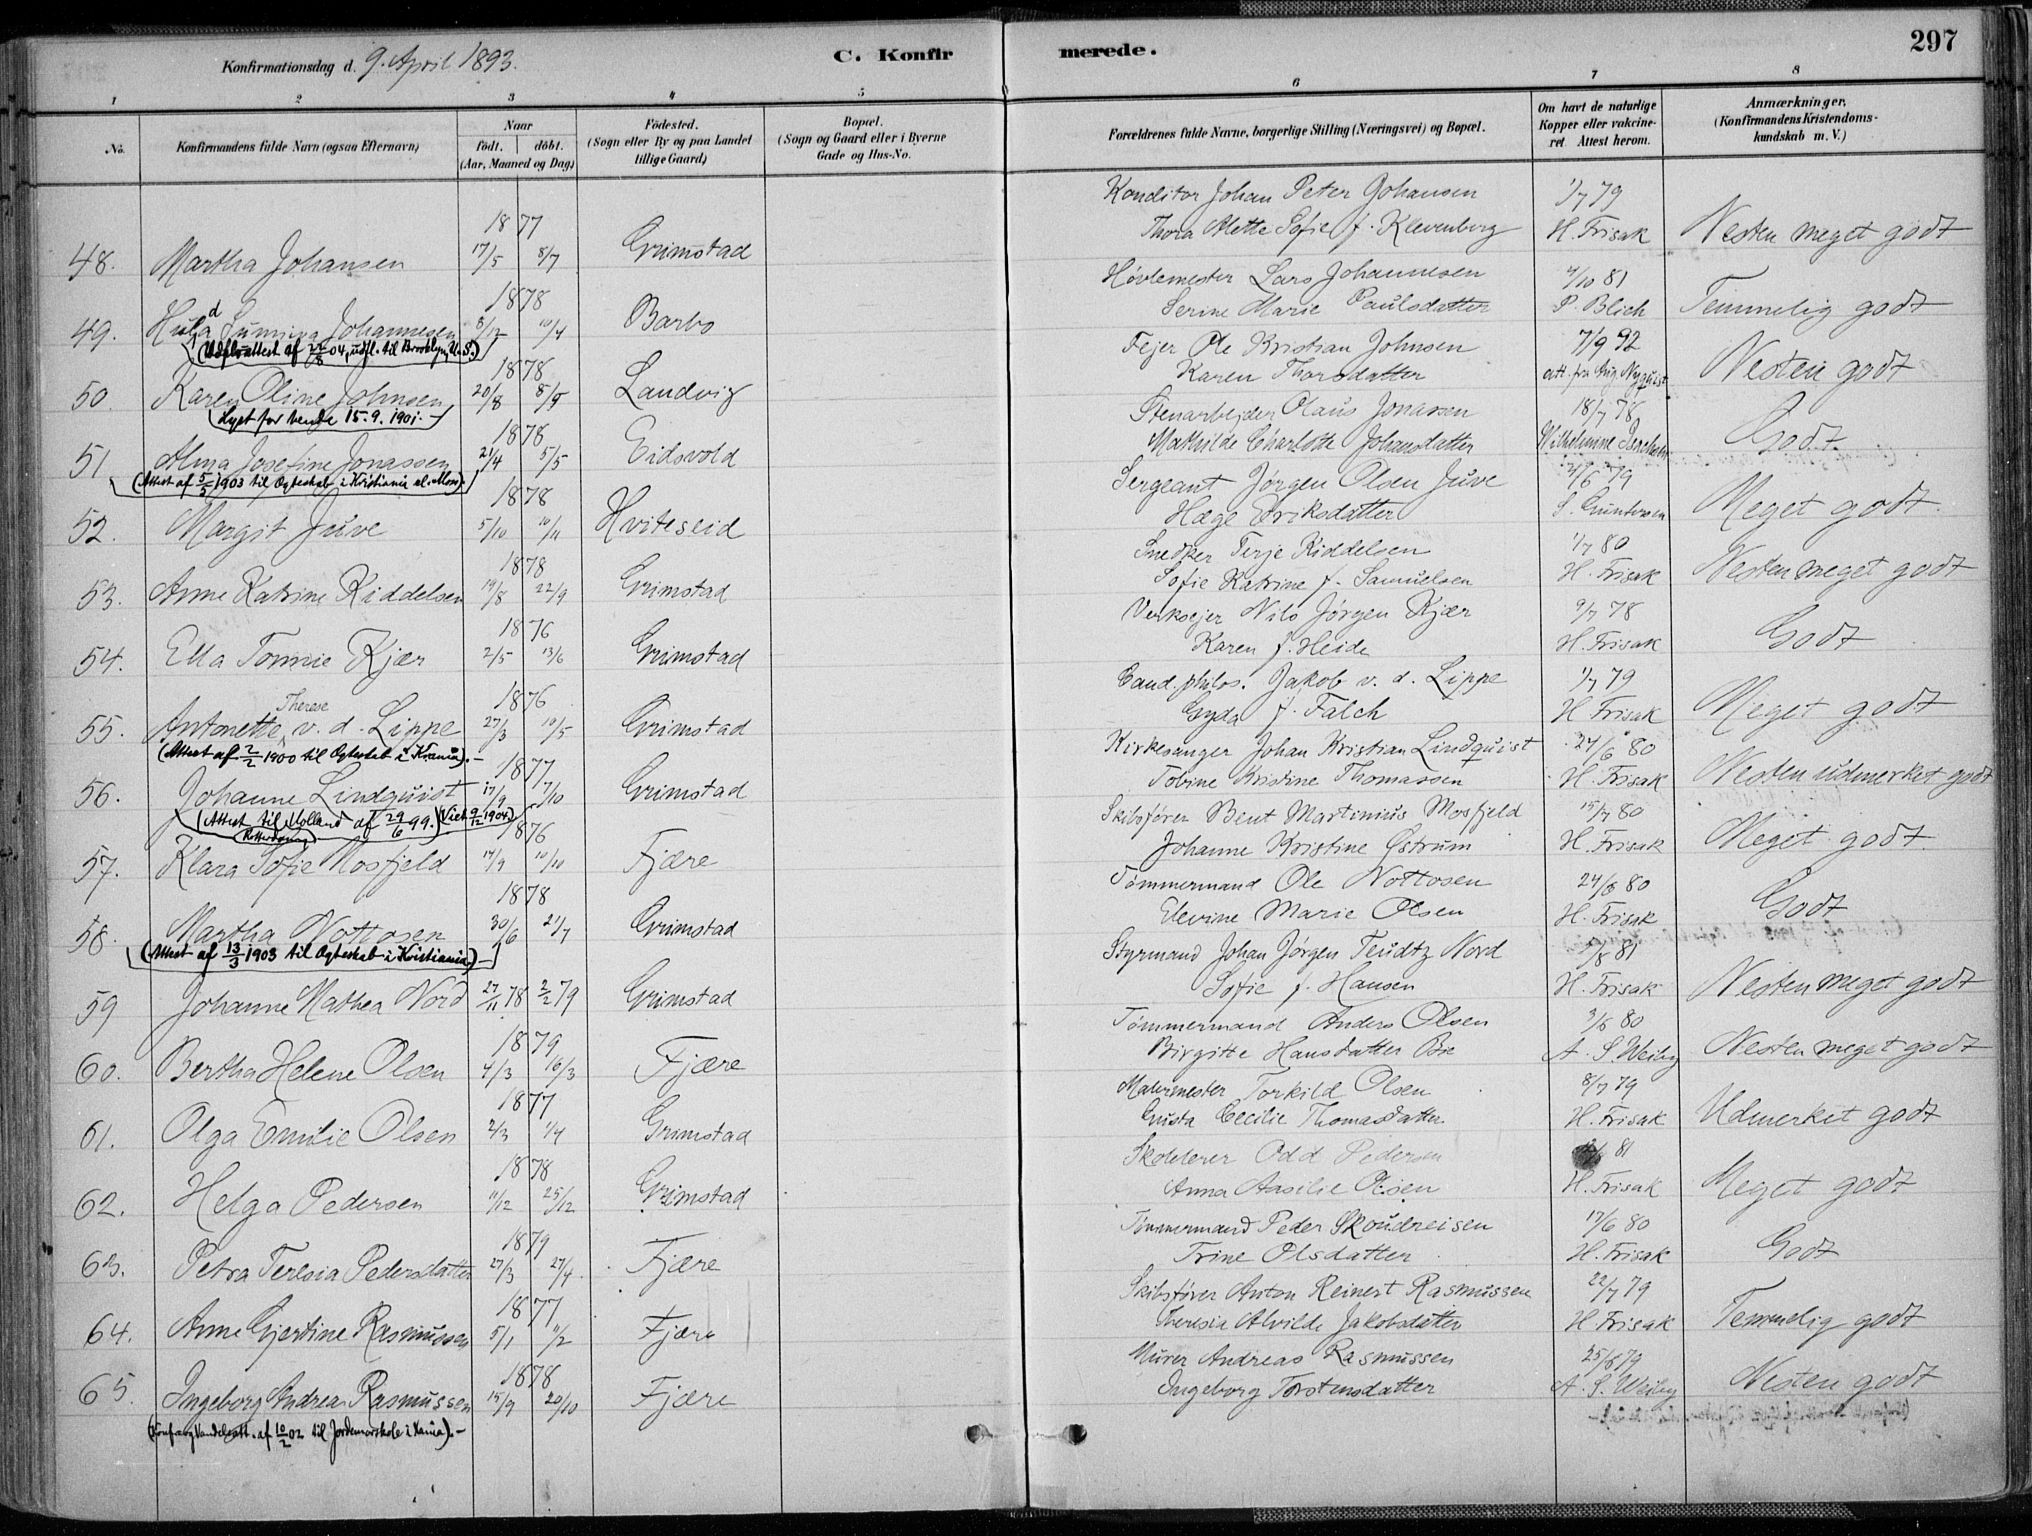 297
Konfirmationsdag d. 9. April 1893.
C. Konfirmerede.
1 2 3 4 5 6 7 8
No.
Konfirmandens fulde Navn (ogsaa Efternavn)
Naar
födt. döbt.
(Aar, Maaned og Dag)
Födested.
(Sogn eller By og paa Landet
tillige Gaard)
Bopæl.
(Sogn og Gaard eller i Byerne
Gade og Hus-No.
Forældrenes fulde Navne, borgerlige Stilling (Næringsvei) og Bopæl.
Om havt de naturlige
Kopper eller vakcine-
ret. Attest herom.
Anmærkninger,
(Konfirmandens Kristendoms-
kundskab m. V.)
1877 Konditor Johan Peter Johansen 1/7 79
48. Martha Johansen 17/5 8/7 Grimstad Thora Mette Sofie f. Klevenberg H. Frisak Nesten meget godt
1878 Høvlemester Lars Johannesen 4/10 81
49. Hulda Sumiva Johannesen 8/12 10/4 Barbo Serine Marie Paulsdatter P. Blich Temmelig godt
(Udflvattest af 22/8 04, udfl. til Brooklyn, U.S.)
1878 Fejer Ole Kristian Johnsen 7/9 92
50. Karen Oline Johnsen 20/8 8/9 Landvig Karen Thorsdatter att. fra Aug. Nyquist Nesten godt
(Lyst for hende 15.9.1901.-)
1878 Stenarbejder Olaus Jonassen 18/7 78
51 Alma Josefine Jonassen 21/4 5/5 Eidsvold Mathilde Charlotte Johansdatter Wilhelmine Godt
(Attest af 5/5 1903 til Ægteskab i Kristiania el. Moss)
1878 Sergeant Jørgen Olsen Juve 21/6 79
52. Margit Juve 5/10 10/11 Hviteseid Hæge Eriksdatter S. Guntersen Meget godt.
1878 Snedker Terje Kiddelsen 1/7 80
53. Anne Katrine Kiddelsen 19/8 22/9 Grimstad Sofie Katrine f. Samuelsen H. Frisak Nesten meget godt
1876 Verksejer Nils Jørgen Kjær 9/7 78
54. Ella Tomine Kjær 2/5 13/6 Grimstad Karen f. Heide H. Frisak Godt
1876 Cand. philos. Jakob v. d. Lippe 1/7 79
55. Antonette Therese v. d. Lippe 27/3 10/5 Grimstad Gyda f. Falch H Frisak Meget godt
(Attest af 2/2 1900 til Ægteskab i Krania).-
1877 Kirkesanger Johan Kristian Lindquist 24/6 80
56. Johanne Lindquist 17/9 17/10 Grimstad Tobine Kristine Thomassen H. Frisak Nesten udmerket godt
(Attest til Holland af 29/6 99.) (Viet 9/12 1904.)
Rotterdam
1876 Skibsfører Bent Martinius Mosfjeld 15/7 80
57. Klara Sofie Mosfjeld 14/9 10/10 Fjære Johanne Kristine Østrum H. Frisak Meget godt
1878 Tømmermand Ole Nottosen 24/6 80
58. Martha Nottosen 30/6 21/7 Grimstad Elevine Marie Olsen H. Frisak Godt
(Attest af 13/3 1903 til Ægteskab i Kristiania)-
Styrmand Johan Jørgen Teudtz Nord 5/8 81
59 Johanne Mathea Nord 27/11 78 2/2 79 Grimstad Sofie f. Hansen H. Frisak Nesten meget godt
1879 Tømmermand Anders Olsen 3/6 80
60. Bertha Helene Olsen 4/3 16/3 Fjære Birgitte Hansdatter Bie A. S. Weiby Nesten meget godt
1877 Malermester Torkild Olsen 8/7 79
61. Olga Emilie Olsen 2/3 1/4 Grimstad Gusta Cecilie Thomasdatter H. Frisak Udmerket godt
1878 Skolelerer Odd Pedersen 81
62. Helga Pedersen 11/12 25/12 Grimstad Anna Aasilie Olsen H. Frisak Meget godt
1879 Tømmermand Peder Skoudreisen 17/6 80
63. Petra Teresia Pedersdatter 27/3 27/4 Fjære Trine Olsdatter H. Frisak Godt
1877 Skibsfører Anton Reinert Rasmussen 22/7 79
64. Anne Gjertine Rasmussen 5/1 11/2 Fjære Theresia Alvilde Jakobsdatter H Frisak Temmelig godt
1878 Murer Andreas Rasmussen 25/8 79
65. Ingeborg Andrea Rasmussen 15/9 20/10 Fjære Ingeborg Torstensdatter A. S. Weiby Nesten godt
(Konf. og Vandelsatt. af 10/2 02 til Jordemorskole i Krania).-